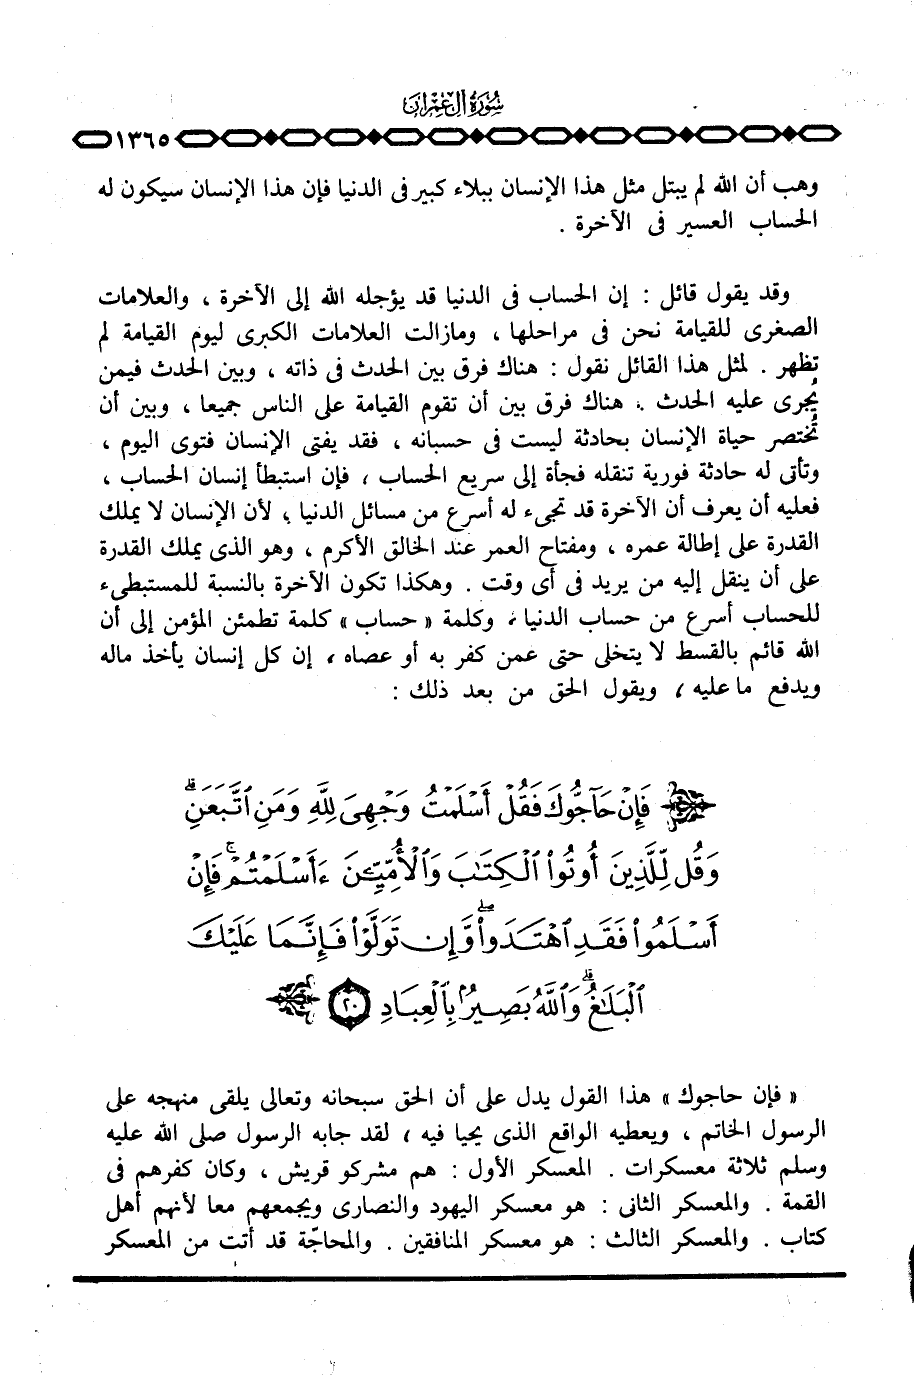 سُورَةُ آلِ عِمْرَانَ
١٣٦٥
وهب أن الله لم يبتل مثل هذا الإنسان ببلاء كبير فى الدنيا فإن هذا الإنسان سيكون له
الحساب العسير فى الآخرة .
وقد يقول قائل : إن الحساب فى الدنيا قد يؤجله الله إلى الآخرة ، والعلامات
الصغرى للقيامة نحن فى مراحلها ، ومازالت العلامات الكبرى ليوم القيامة لم
تظهر . لمثل هذا القائل نقول : هناك فرق بين الحدث فى ذاته ، وبين الحدث فيمن
يُجرى عليه الحدث . هناك فرق بين أن تقوم القيامة على الناس جميعا ، وبين أن
تُختصر حياة الإنسان بحادثة ليست فى حسبانه ، فقد يفتى الإنسان فتوى اليوم ،
وتأتى له حادثة فورية تنقله فجأة إلى سريع الحساب ، فإن استبطأ إنسان الحساب ،
فعليه أن يعرف أن الآخرة قد تجىء له أسرع من مسائل الدنيا ، لأن الإنسان لا يملك
القدرة على إطالة عمره ، ومفتاح العمر عند الخالق الأكرم ، وهو الذى يملك القدرة
على أن ينقل إليه من يريد فى أى وقت . وهكذا تكون الآخرة بالنسبة للمستبطىء
للحساب أسرع من حساب الدنيا ، وكلمة « حساب » كلمة تطمئن المؤمن إلى أن
الله قائم بالقسط لا يتخلى حتى عمن كفر به أو عصاه ، إن كل إنسان يأخذ ماله
ويدفع ما عليه ، ويقول الحق من بعد ذلك :
فَإِنْ حَآجُّوكَ فَقُلْ أَسْلَمْتُ وَجْهِىَ لِلَّهِ وَمَنِ ٱتَّبَعَنِ ۗ
وَقُل لِّلَّذِينَ أُوتُوا۟ ٱلْكِتَٰبَ وَٱلْأُمِّيِّـۧنَ ءَأَسْلَمْتُمْ ۚ فَإِنْ
أَسْلَمُوا۟ فَقَدِ ٱهْتَدَوا۟ ۖ وَّإِن تَوَلَّوْا۟ فَإِنَّمَا عَلَيْكَ
ٱلْبَلَٰغُ ۗ وَٱللَّهُ بَصِيرٌۢ بِٱلْعِبَادِ ٢٠
« فإن حاجوك » هذا القول يدل على أن الحق سبحانه وتعالى يلقى منهجه على
الرسول الخاتم ، ويعطيه الواقع الذى يحيا فيه ، لقد جابه الرسول صلى الله عليه
وسلم ثلاثة معسكرات . المعسكر الأول : هم مشركو قريش ، وكان كفرهم فى
القمة . والمعسكر الثانى : هو معسكر اليهود والنصارى ويجمعهم معا لأنهم أهل
كتاب . والمعسكر الثالث : هو معسكر المنافقين . والمحاجّة قد أتت من المعسكر